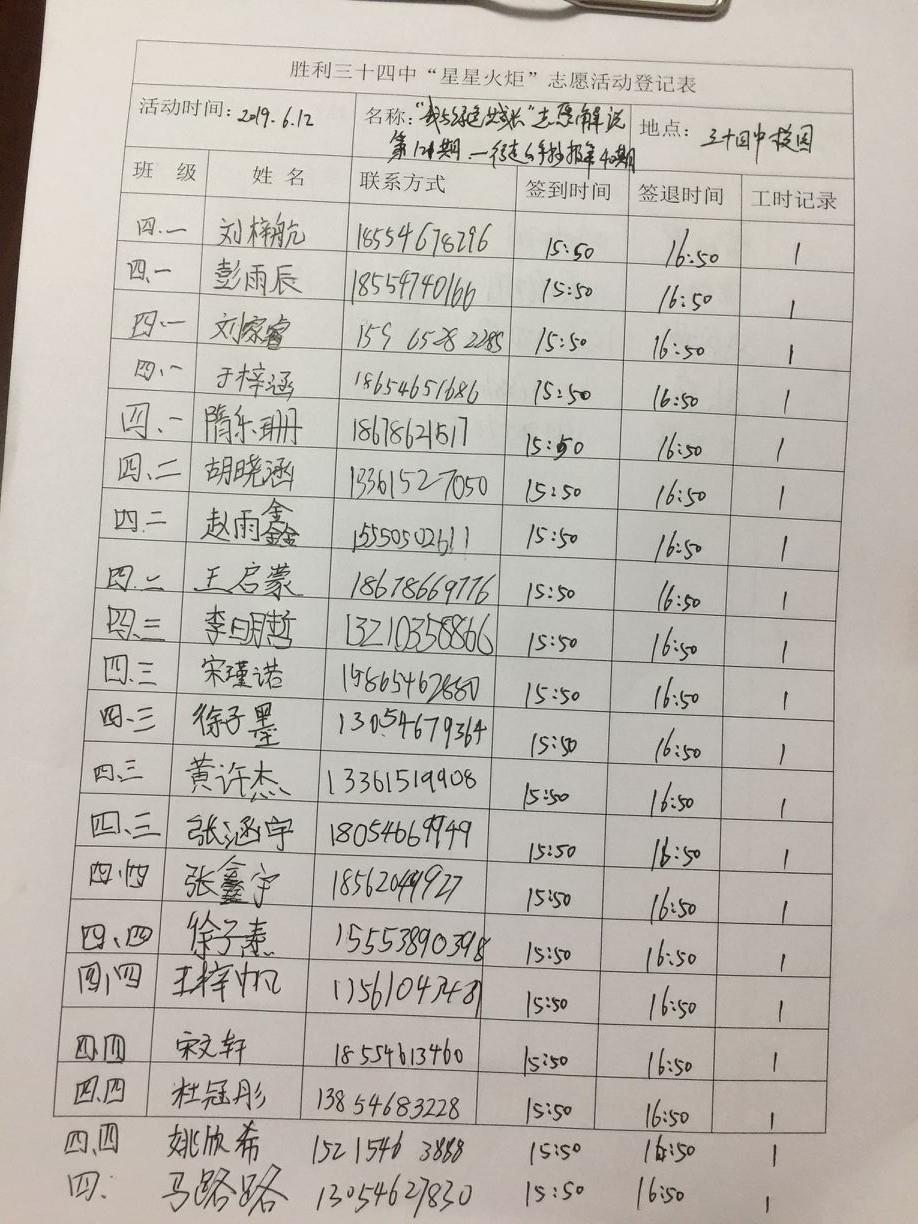 胜利三十四中“星星火炬”志愿活动登记表
活动时间：2019.6.12 名称：“我与绿色共成长”志愿解说 地点：三十四中校园
第121期
班 级 姓 名 联系方式 签到时间 签退时间 工时记录
四.一 刘梓航 18554678296 15:50 16:50 1
四.一 彭雨辰 18554740166 15:50 16:50 1
四.一 刘家睿 159 6528 2285 15:50 16:50 1
四.一 于梓涵 18654651686 15:50 16:50 1
四.一 隋乐珊 18678621517 15:50 16:50 1
四、二 胡晓涵 13361527050 15:50 16:50 1
四.二 赵雨鑫 15550502611 15:50 16:50 1
四.二 王启蒙 18678669776 15:50 16:50 1
四.三 李明哲 13210358866 15:50 16:50 1
四.三 宋瑾诺 15:50 16:50 1
四.三 徐子墨 13054679364 15:50 16:50 1
四.三 黄许杰 13361519908 15:50 16:50 1
四、三 张涵宇 18054669949 15:50 16:50 1
四.四 张鑫宇 18562049927 15:50 16:50 1
四、四 徐子素 15553890398 15:50 16:50 1
四、四 王梓帆 15:50 16:50 1
四.四 宋文轩 18554613460 15:50 16:50 1
四.四 杜冠彤 13854683228 15:50 16:50 1
四.四 姚欣希 1521546 3888 15:50 16:50 1
四. 马路路 13054627830 15:50 16:50 1